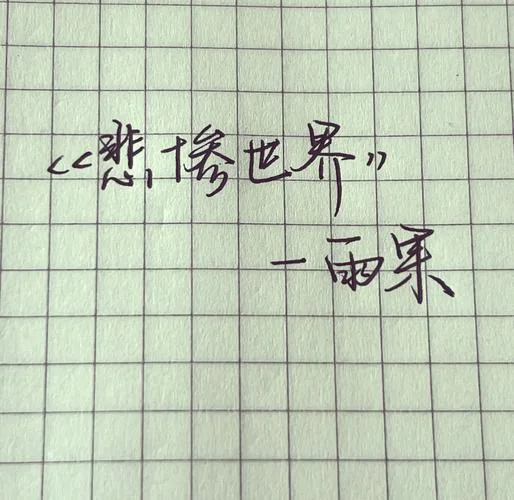 《悲惨世界》
—雨果